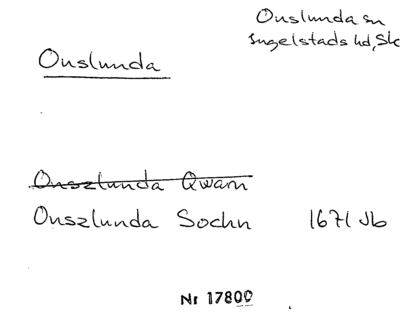 Onslunda sn
Ingelstads hd, Sk
Onslunda
Onszlunda Qwarn
Onszlunda Sochn 1671 Jb
Nr 17800